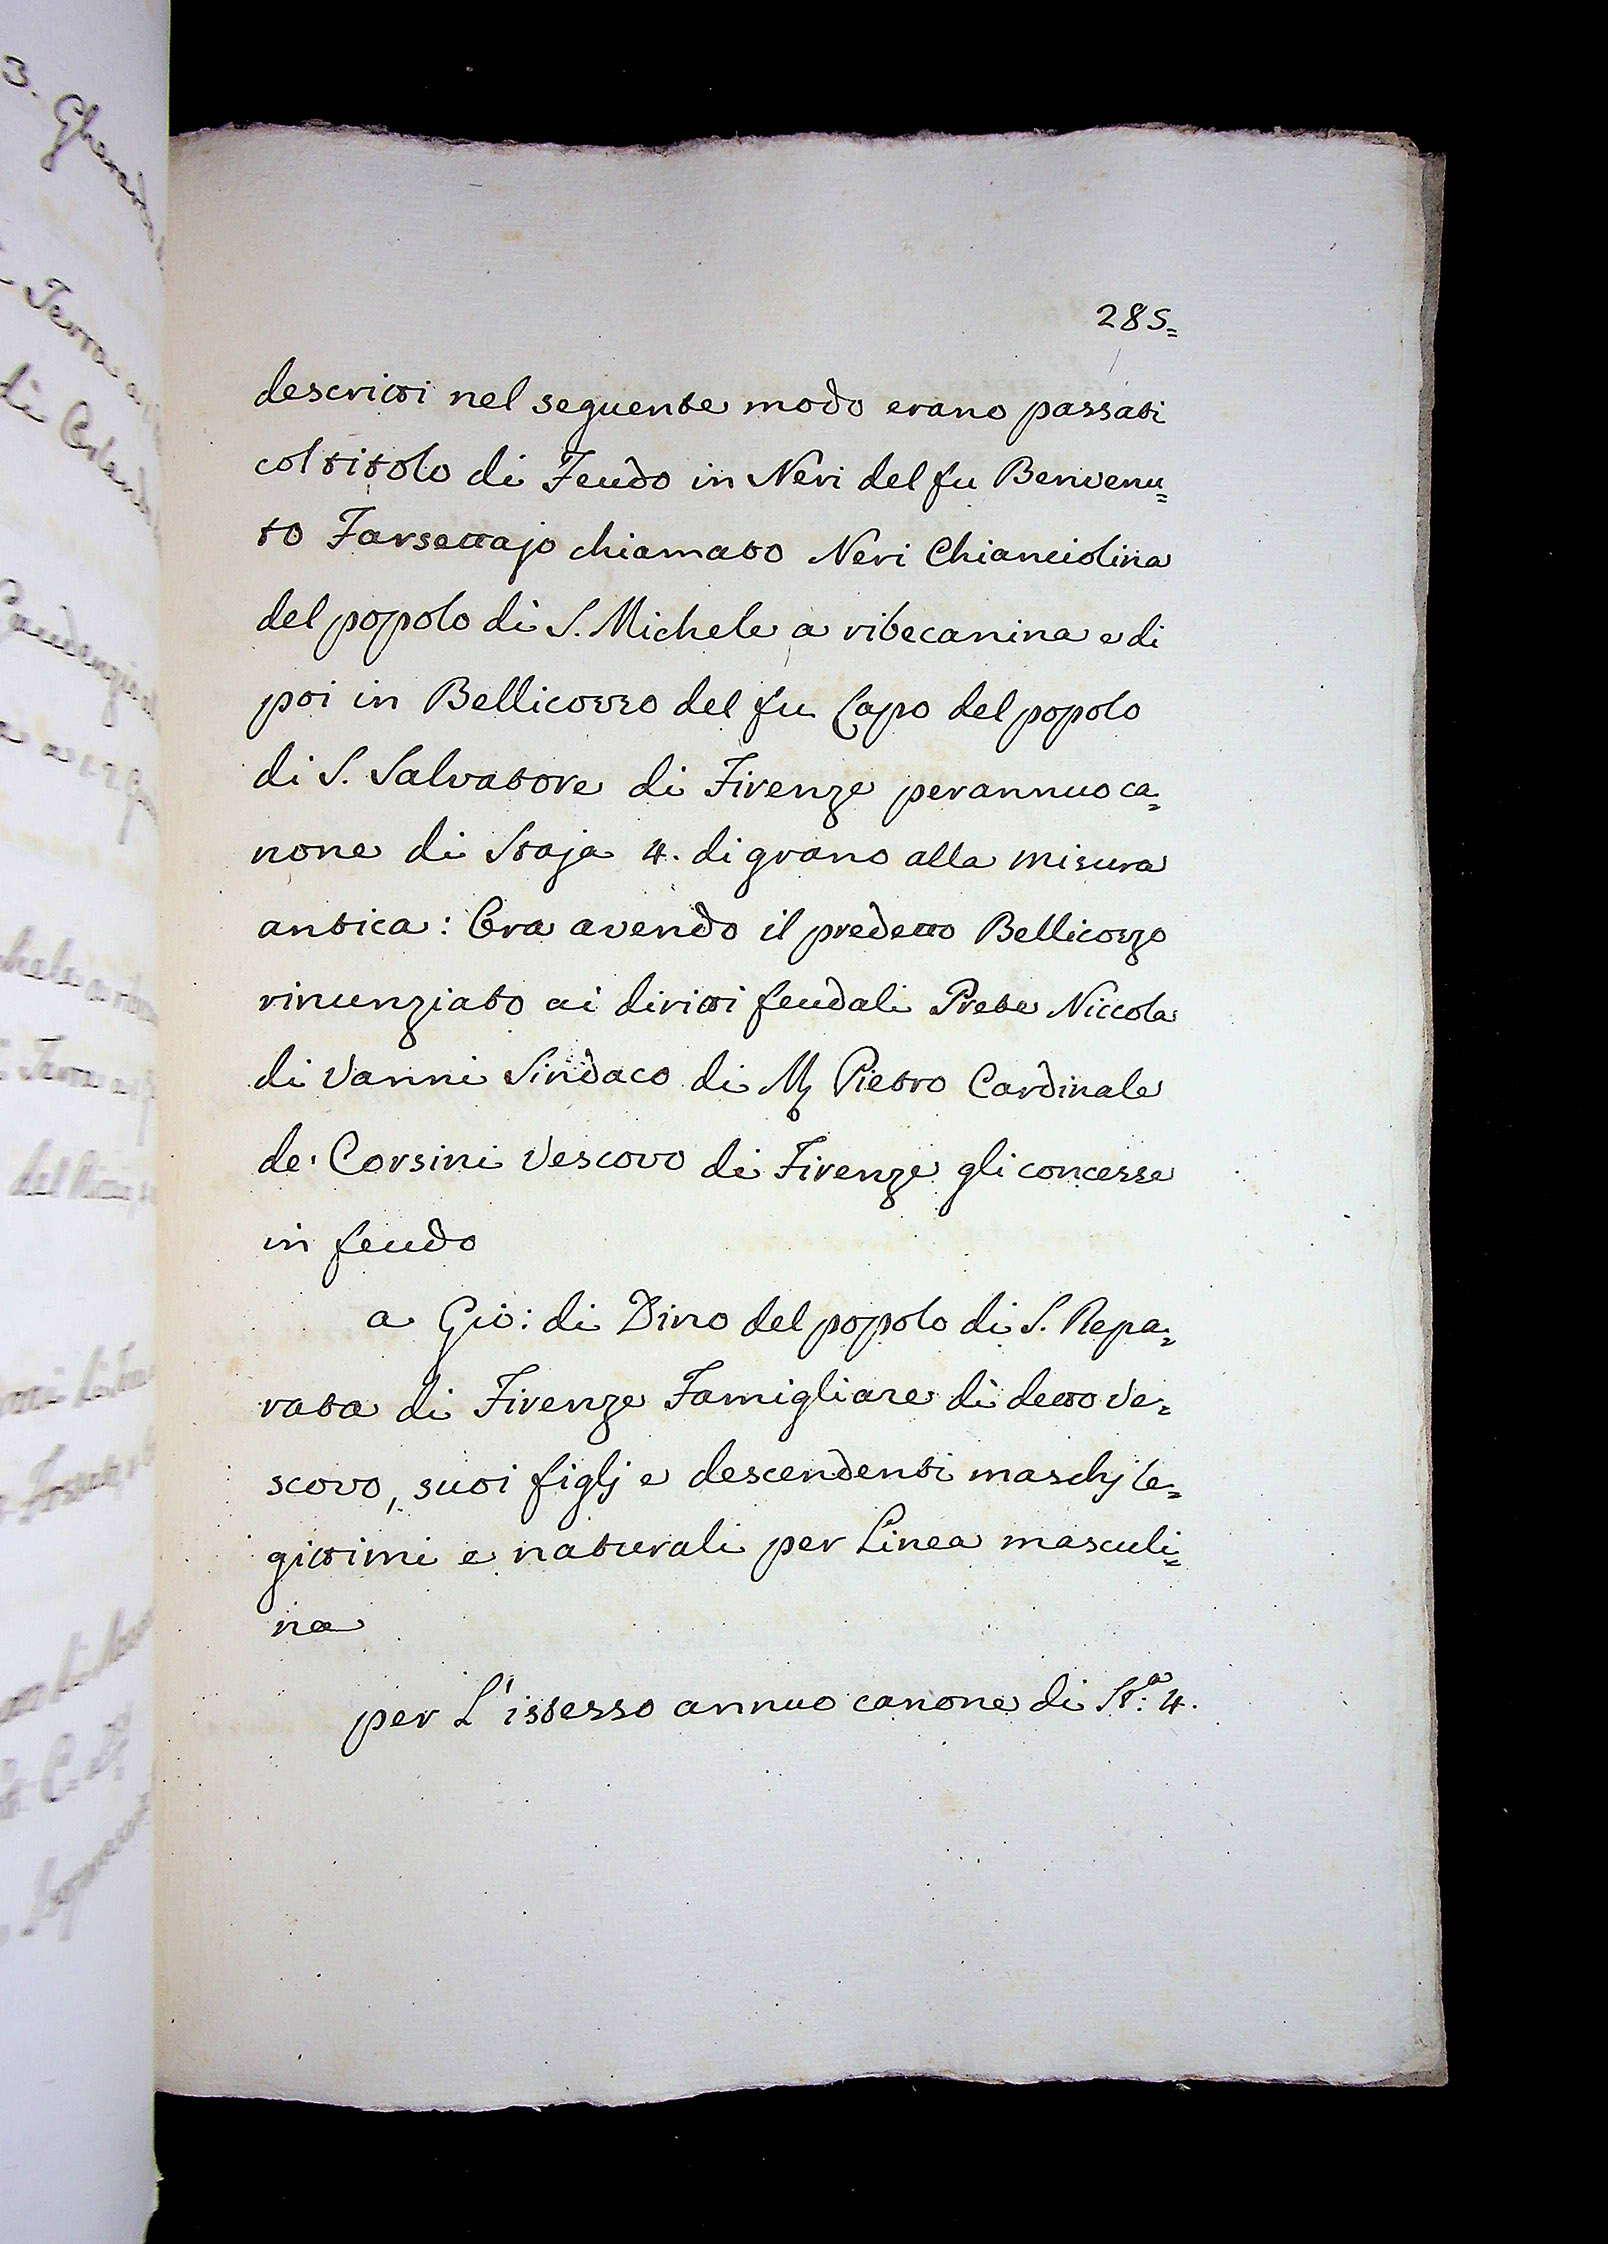 285=
descritti nel seguente modo erano passati
col titolo di Feudo in Neri del fu Benvenu=
to Farsettajo chiamato Neri Chianciolina
del popolo di S. Michele a ribecanina e di
poi in Bellicozzo del fu Capo del popolo
di S. Salvatore di Firenze per annuo ca=
none di Staja 4. di grano alla misura
antica: Ora avendo il predetto Bellicozzo
rinunziato ai diritti feudali Prete Niccola
di Vanni Sindaco di M Pietro Cardinale
de' Corsini Vescovo di Firenze gli concesse
in feudo
a Gio: di Dino del popolo di S. Repa=
rata di Firenze Famigliare di detto Ve=
scovo, suoi figlj e descendenti maschj le=
gittimi e naturali per Linea masculi=
na
per L'istesso annuo canone di St:a 4.